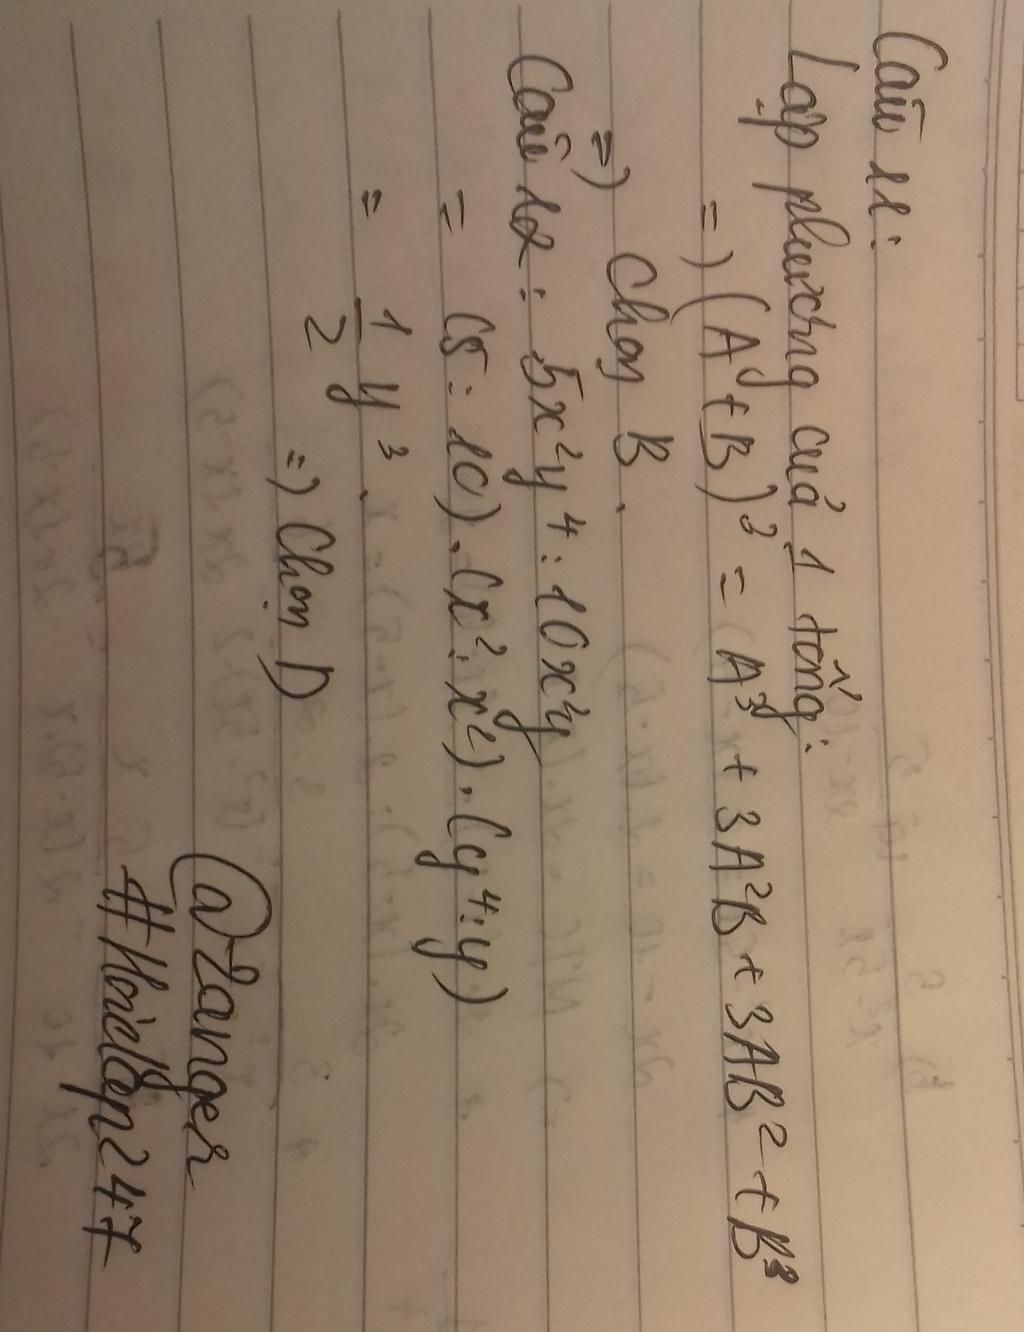 Câu 11:
Lập phương của 1 tổng:
=) (A+B)³ = A³ + 3A²B + 3AB² + B³
=) Chọn B.
Câu 12: 5x²y⁴ : 10x²y
= (5:10).(x²:x²).(y⁴:y)
= 1/2 y³.
=) Chọn D
@2anger
#Hoidap247